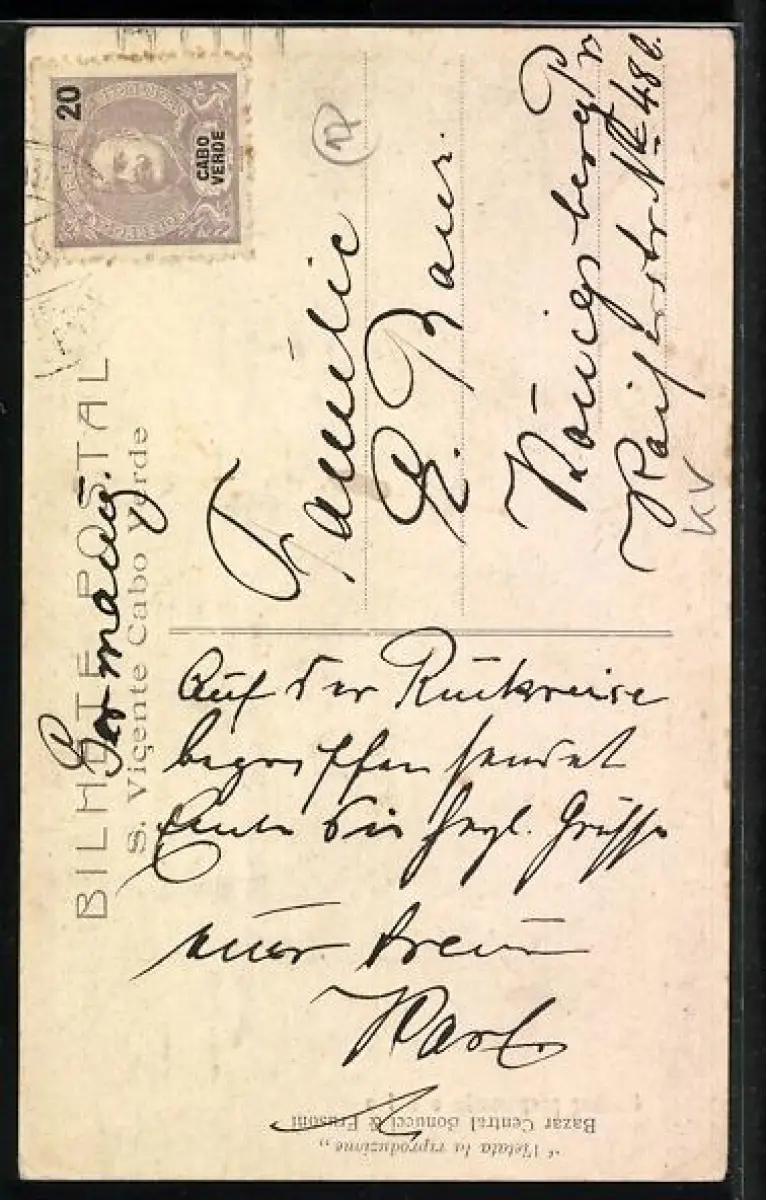 20
CABO
VERDE
BILHETE POSTAL
S. Viçente Cabo Verde
Germany.
Familie
R. Baur.
Königsberg Pr
Kaiserstr № 48 C.
Auf der Rückreise
begriffen sendet
Euch die hrzl. Grüsse
euer treuer
Karl
12
KV
Bazar Central Bonucci & Frusoni
"Vietata la riproduzione„